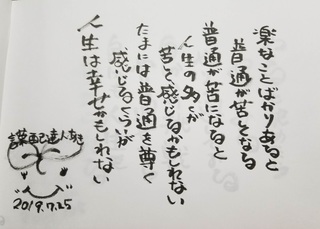 楽なことばかりあると
普通が苦しくなる
普通が苦になると
人生の多くが
苦しく感じるかもしれない
たまには普通を尊く
感じるくらいが
人生は幸せかもしれない
2019.7.25